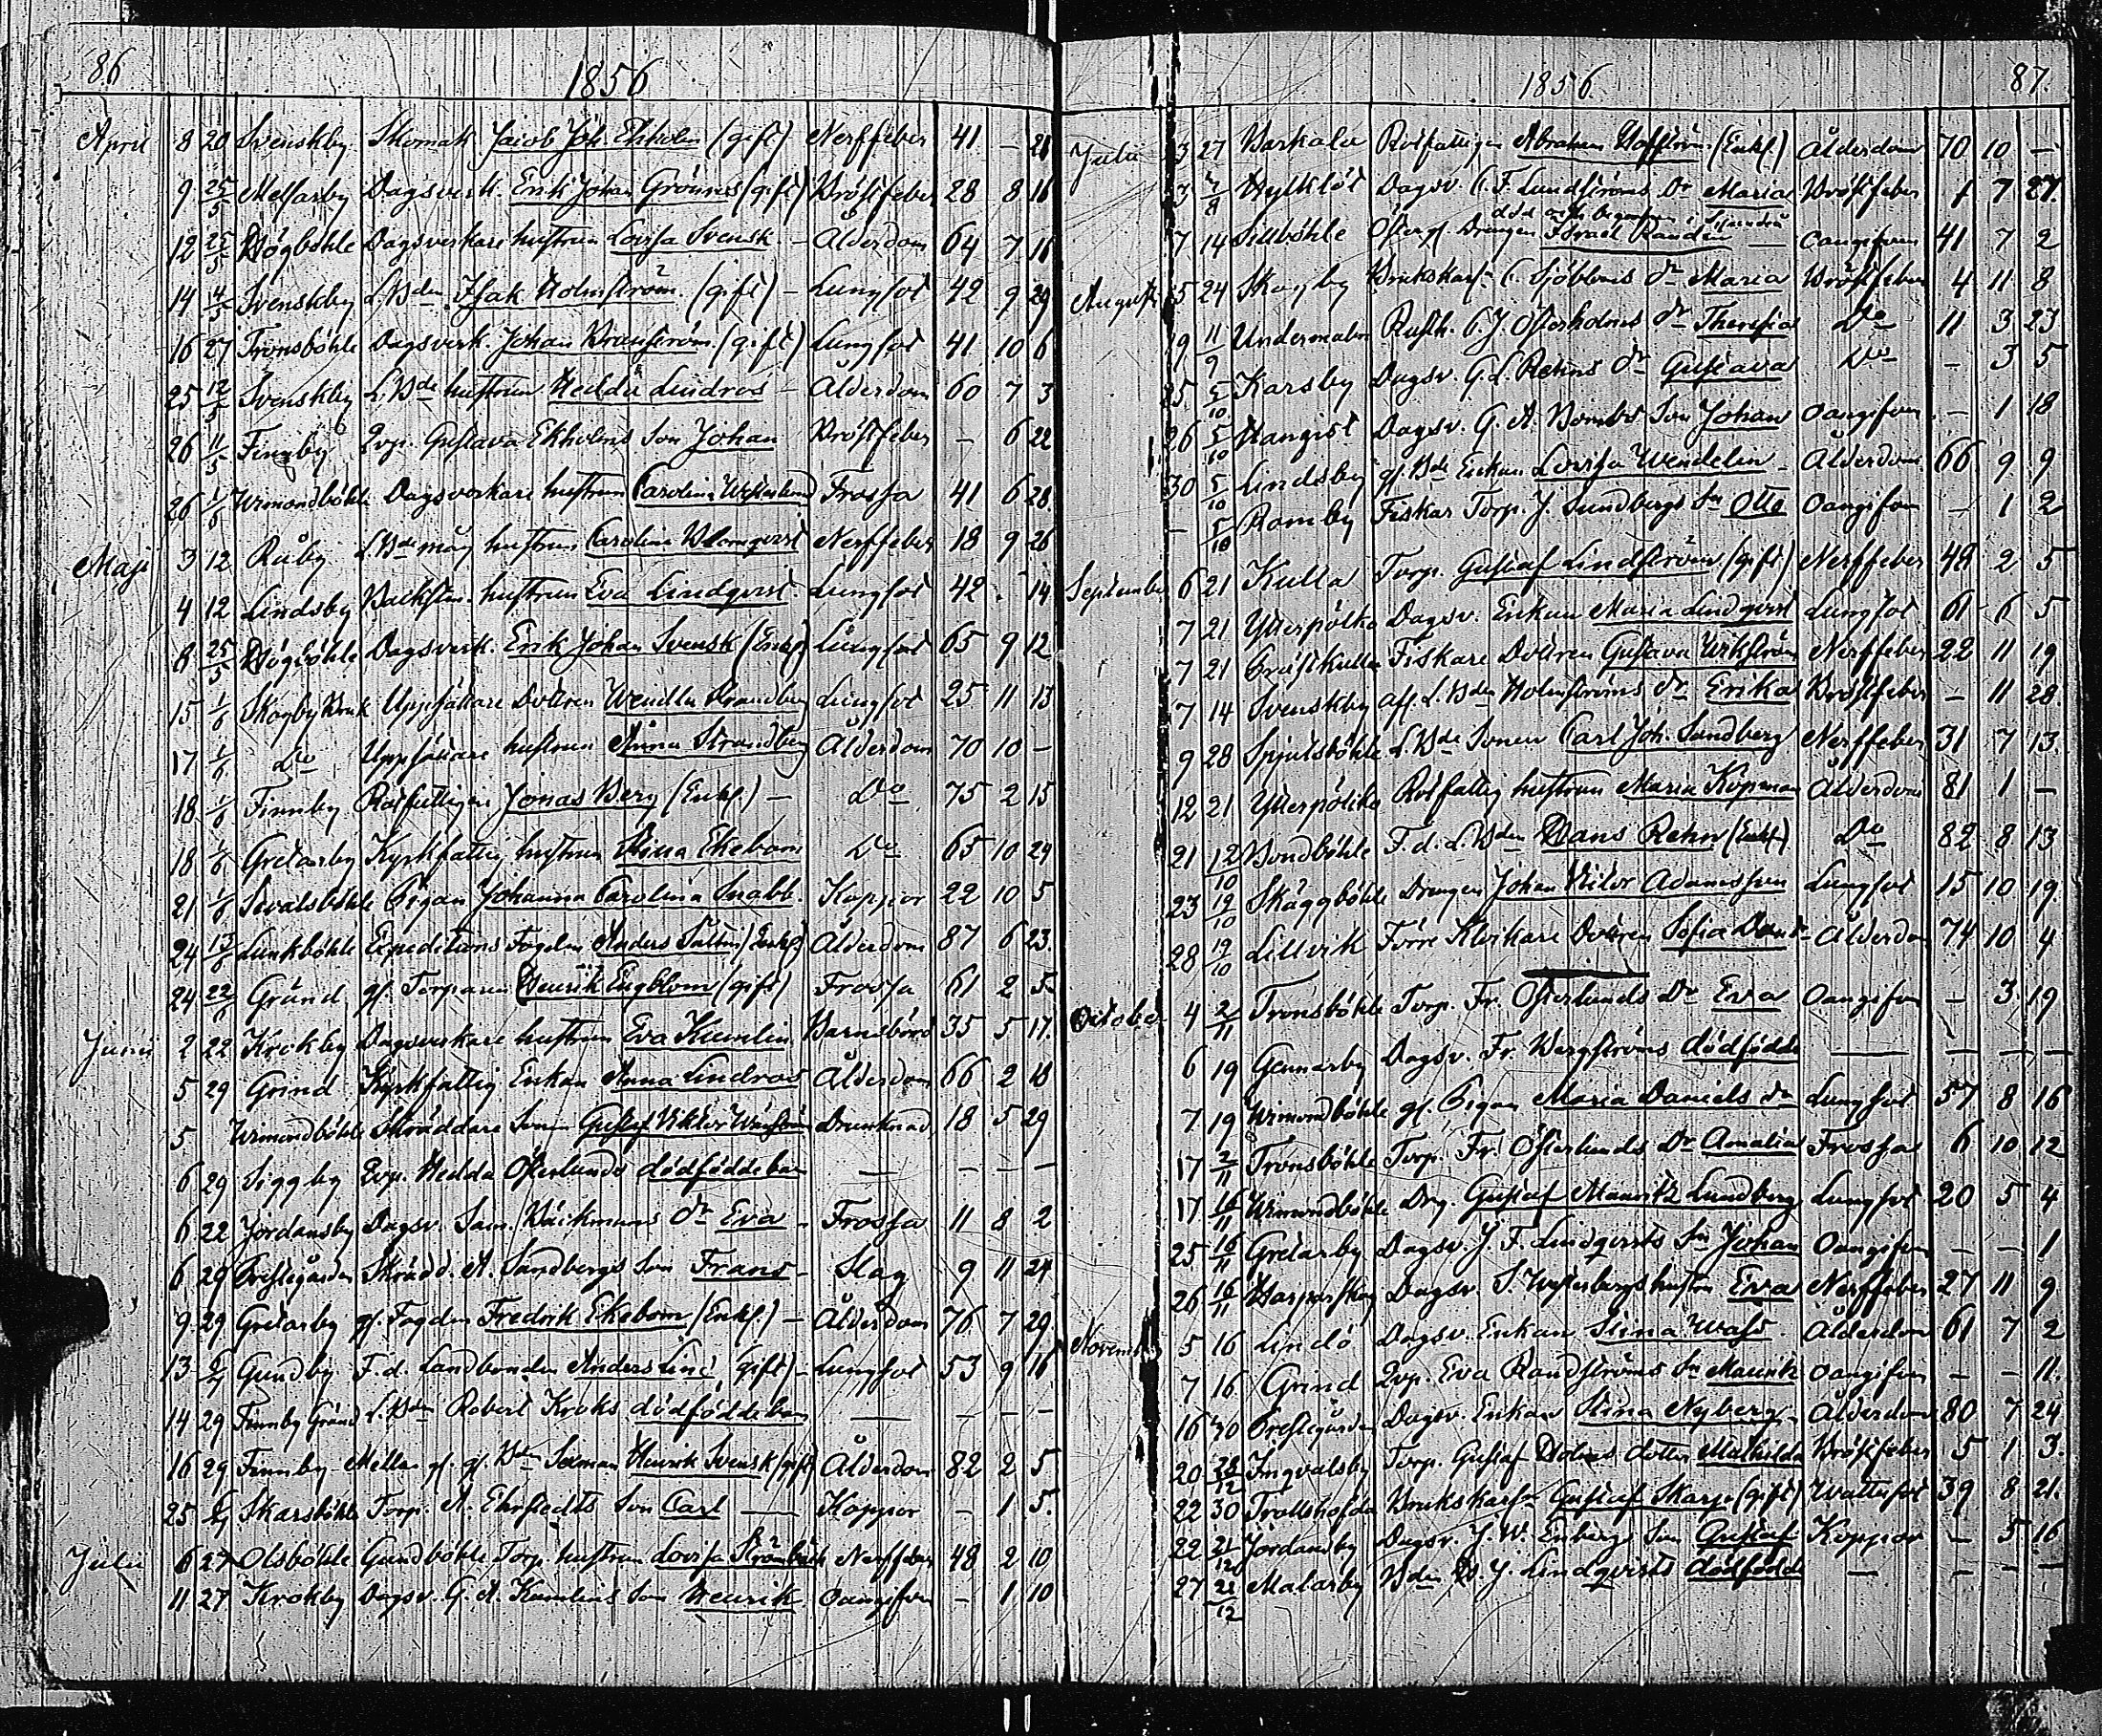 86
1856
April 8 20 Svenskby Skomak Jacob Joh. Ekholm (gift) Nerffeber 41 – 28
9 25/5 Melsarby Dagsverk. Erik Johan Grönroos (gift) Bröstfeber 28 8 16
12 25/5 Högböhle Dagsverkare hustrun Lovisa Svensk – Ålderdom 64 7 11
14 4/5 Svenskby L.Bden Isak Holmström (gift) – Lungsot 42 9 29
16 27 Tronsböhle Dagsverk. Johan Branström (gift) Lungsot 41 10 6
25 12/5 Svenskby L.Bde hustrun Hedda Lindros – Ålderdom 60 7 3
26 11/5 Finnby Qvp. Gustava Ekholms Son Johan Bröstfeber – 6 22
26 1/6 Wimondböhle Dagsverkare hustrun Carolina Westerlund Frossa 41 6 28
Maji 3 12 Råby L.Bde måg hustrun Carolina Blomqvist Nerffeber 18 9 26
4 12 Lindsby Backstm. hustrun Eva Lindqvist Lungsot 42 – 14
6 25/5 Högböhle Dagsverk. Erik Johan Svensk (Enkl.) Lungsot 65 9 12
15 1/6 Skogby Bruk Uppsykare Dottren Wendla Strandberg Lungsot 25 11 13
17 1/6 Do Uppsykare hustrun Anna Strandberg Ålderdom 70 10 –
18 1/6 Finnby Rotfattigen Jonas Berg (Enkl.) – Do 75 2 15
18 1/6 Gretarby Kyrkfattig hustrun Stina Ekebom Do 65 10 24
21 1/6 Sevalsböhle Pigan Johanna Carolina Snabb. Koppor 22 10 5
24 13/6 Lunkböhle Expeditions Fogden Anders (Enkl.) Ålderdom 87 6 23
24 22/6 Gründ gl. Torparen Henrik Engblom (gift) Frossa 61 2 5
Junii 2 22 Krokby Dagsverkare hustrun Eva Kumlin Barnsbörd 35 5 17
5 29 Grind Kyrkfattig Enkan Anna Lindroos Ålderdom 66 2 18
5 Wimondböhle Skräddare Sonen Gustaf Viktor Drunknad 18 5 29
6 29 Siggby Qvp. Hedda Österlunds dödfödde barn — – – –
6 22 Jordansby Dagsv. Sam. Bäckmans Dr Eva – Frossa 11 8 2
6 29 Prestegården Skrädd. A. Sandbergs Son Frans – Slag 9 11 24
9 29 Gretarby gl. Fogden Fredrik Ekebom (Enkl.) – Ålderdom 76 7 29
13 6/7 Gundby F.d. Landbonden Anders Lind (gift) – Lungsot 53 9 16
14 29 Finnby Gränd L.Bden Robert Kroks dödfödde barn — – – –
16 29 Finnby Mellan gl. gl. Bden Henrik Svensk (gift) Ålderdom 82 2 5
25 6/7 Skarsböhle Torp. A. Ehrstedts Son Carl — Koppor – 1 5
Julii 6 27 Olsböhle Gundböhle Torp. hustrun Lovisa Strömbäck Nerffeber 48 2 10
11 27 Krokby Dagsv. G. A. Kumlins Son Henrik Oangifven – 1 10
1856
87.
Julii 13 27 Barkala Rotfattigen Abraham Hoffström (Enkl.) Ålderdom 70 10 –
3 3/8 Hylklöt Dagsv. C. F. Lundströms Dr Maria Bröstfeber 1 7 27
död och begrafven i
7 14 Sillböhle Drengen Israel Randen — Oangifven 41 7 2
August 5 24 Skogby Brukskarl C. Sjöbloms Dr Maria Bröstfeber 4 11 8
19 11/9 Undermalm Rusth. C. J. Österholms Dr Theresia Do 11 3 23
25 5/10 Karsby Dagsv. G. L. Dr Gustava Do – 3 5
26 5/10 Hangist Dagsv. G. A. Bombs Son Johan Oangifven – 1 18
30 5/10 Lindsby gl. Bde Enkan Lovisa Wendelin – Ålderdom 66 9 9
– 5/10 Romby Fiskar Torp. J. Sundbergs Sn Otto Oangifven – 1 2
September 6 21 Kulla Torp. Gustaf Lindström (gift) Nerffeber 42 2 5
7 21 Ytterpölko Dagsv. Enkan Maria Lindqvist Lungsot 61 6 5
7 21 Prästkulla Fiskare Dottren Gustava Wikström Nerffeber 22 11 19
7 14 Svenskby afl. L.Bden Holmströms Dr Erika Bröstfeber – 11 28
9 28 Spjutsböhle L.Bde Sonen Carl Joh. Sandberg Nerffeber 31 7 13
12 21 Ytterpölko Rotfattig hustrun Maria Köpman Ålderdom 81 1 –
21 12/10 Bondböhle F.d. L.Bden Hans Rehn (Enkl.) Do 82 8 13
23 12/10 Skäggböhle Drengen Johan Victor Adamsson Lungsot 15 10 19
28 19/10 Lillvik Förre Klockare Dottren Sofia Ålderdom 74 10 4
October 4 2/11 Tronsböhle Torp. Fr. Österlunds Dr Eva Oangifven – 3 19
6 19 Gennarby Dagsv. Fr. Bergströms dödfödde — – – –
7 19 Wimondböhle gl. Pigan Maria Daniels dr Lungsot 57 8 16
17 2/11 Tronsböhle Torp. Fr. Österlunds Dr Amalia Frossa 6 10 12
17 16/11 Wimondböhle Drg. Gustaf Mauritz Lundberg Lungsot 20 5 4
25 16/11 Gretarby Dagsv. J. F. Lindqvists Sn Johan Oangifven – – 1
26 16/11 Harparskog Dagsv. S. Westerbergs hustru Eva Nerffeber 27 11 9
November 5 16 Lindö Dagsv. Enkan Stina Wass. Ålderdom 61 7 2
7 16 Grind Qvp. Eva Randströms Sn Maurits Oangifven – – 11
16 30 Prestegården Dagsv. Enkan Stina Nyberg – Ålderdom 80 7 24
20 26/12 Ingvalsby Torp. Gustaf Holms dotter Mathilda Bröstfeber 5 1 3
22 30 Trollshofda Brukskarl Gustaf Skarp (gift) Wattusot 39 8 21
22 21/12 Jordansby Dagsv. J. W. Enbergs Son Gustaf Koppor – 5 16
27 21/12 Malarby Bden J. Lindqvists dödfödde — – – –